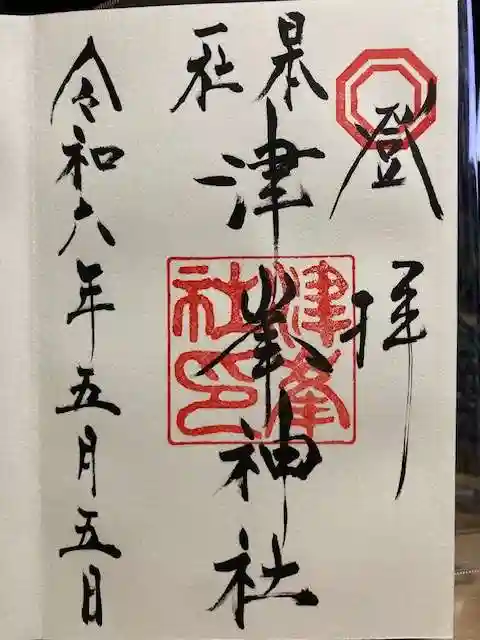 登拝
県社
津峯神社
津峯社印
令和六年五月五日